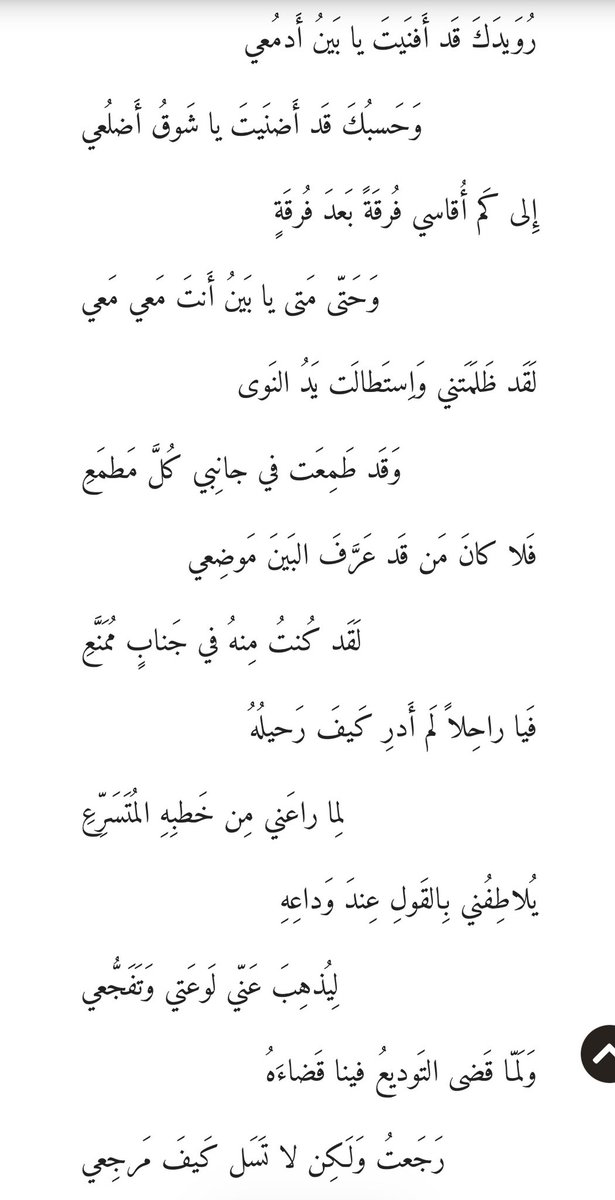 رُوَيدَكَ قَد أَفنَيتَ يا بَينُ أَدمُعي
وَحَسبُكَ قَد أَضنَيتَ يا شَوقُ أَضلُعي
إِلى كَم أُقاسي فُرقَةً بَعدَ فُرقَةٍ
وَحَتّى مَتى يا بَينُ أَنتَ مَعي مَعي
لَقَد ظَلَمَتني وَاِستَطالَت يَدُ النَوى
وَقَد طَمِعَت في جانِبي كُلَّ مَطمَعِ
فَلا كانَ مَن قَد عَرَّفَ البَينَ مَوضِعي
لَقَد كُنتُ مِنهُ في جَنابٍ مُمَنَّعِ
فَيا راحِلاً لَم أَدرِ كَيفَ رَحيلُهُ
لِما راعَني مِن خَطبِهِ المُتَسَرِّعِ
يُلاطِفُني بِالقَولِ عِندَ وَداعِهِ
لِيُذهِبَ عَنّي لَوعَتي وَتَفَجُّعي
وَلَمّا قَضى التَوديعُ فينا قَضاءَهُ
رَجَعتُ وَلَكِن لا تَسَل كَيفَ مَرجِعي